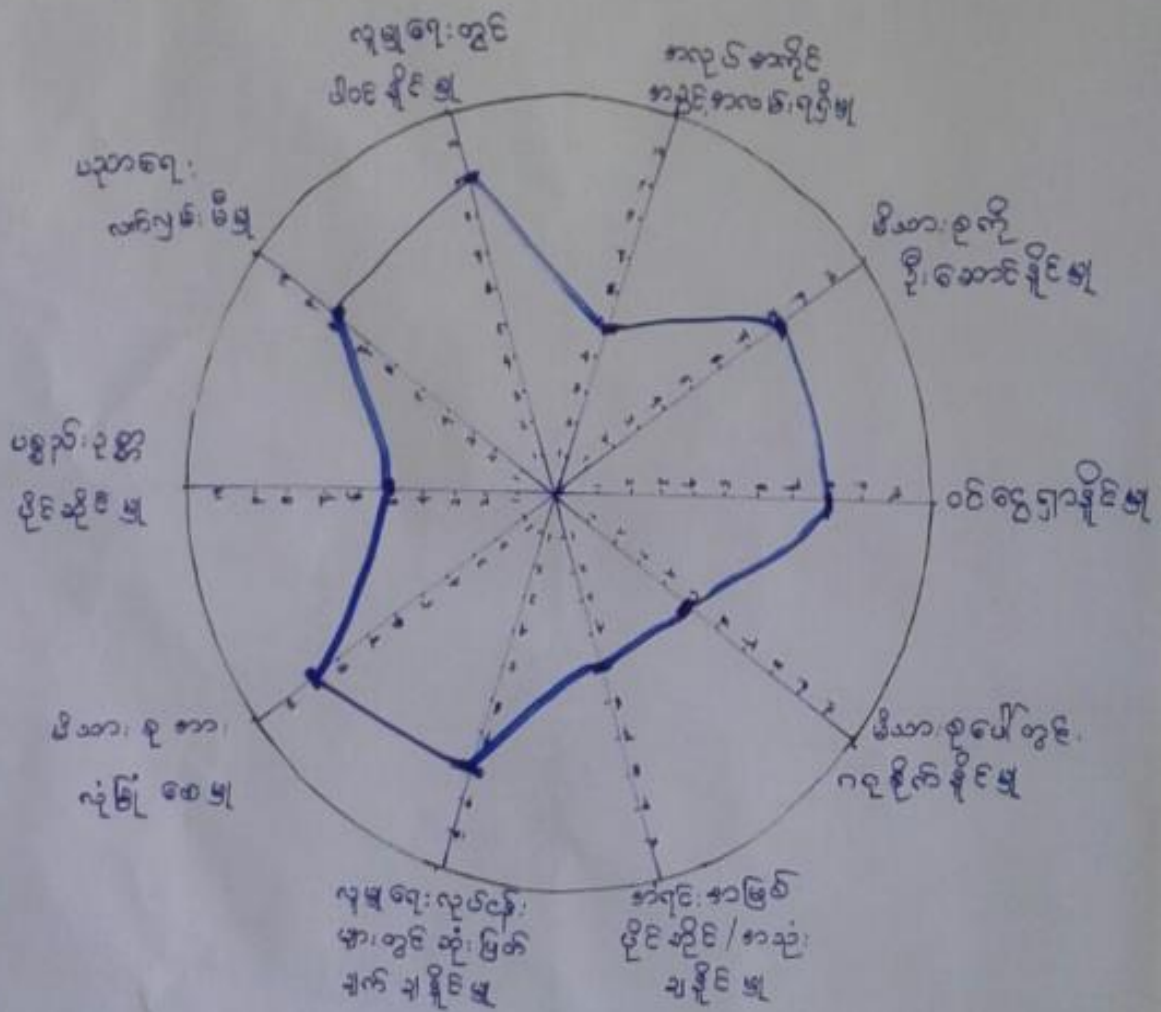 လူမှုရေးတွင်
ပါဝင်နိုင်မှု
အလုပ်အကိုင်
အခွင့်အလမ်းရရှိမှု
မိသားစုကို
ဦးဆောင်နိုင်မှု
ဝင်ငွေရှာနိုင်မှု
မိသားစုပေါ်တွင်
ဂရုစိုက်နိုင်မှု
အရင်းအမြစ်
ပိုင်ဆိုင်/အသုံး
ချနိုင်မှု
လူမှုရေးလုပ်ငန်း
များတွင် ဆုံးဖြတ်
ချက် ချနိုင်မှု
မိသားစု အား
လုံခြုံ စေမှု
ပစ္စည်းဥစ္စာ
ပိုင်ဆိုင်မှု
ပညာရေး
လက်လှမ်းမီမှု